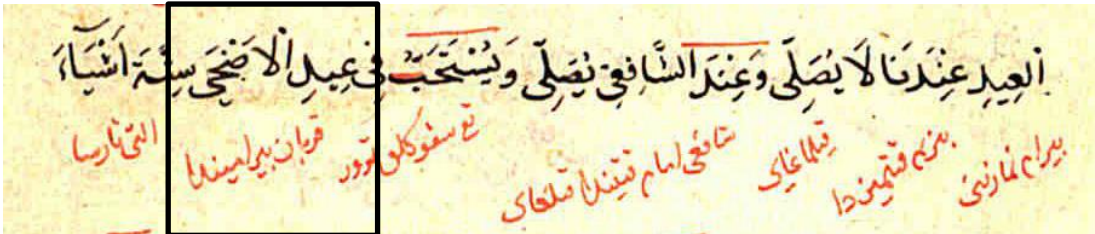 العِيدِ عِنْدَنَا لَا يُصَلِّى وَعِنْدَ الشَّافِعِىِّ يُصَلِّى وَيُسْتَحَبُّ فِى عِيدِ الْاَضْحَى سِتَّةَ اَشْيَاءَ
بيرام نمازنى بزيم قتيميزدا قيلماغاى شافعى امام قتيندا قلغاى قربان بيراميندا التى نارسا